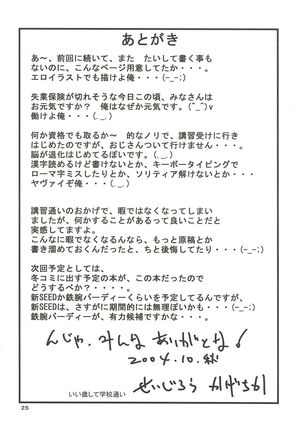 あとがき
あ~、前回に続いて、また たいして書く事も
ないのに、こんなページ用意してたか・・・。
エロイラストでも描けよ俺・・・(-_-;)
失業保険が切れそうな今日この頃、みなさんは
お元気ですか? 俺はなぜか元気です。(^_^)v
働けよ俺・・・(._.)
何か資格でも取るか~ 的なノリで、講習受けに行き
はじめたのですが、おじさんついて行けません・・・。
脳が退化してめてるぽいです。(._.)
漢字読めるけど書けないとか、キーボータイピングで
ローマ字ミスしたりとか、ソリティア解けないとか・・・
ヤヴァイぞ俺・・・(._.)
講習通いのおかげで、暇ではなくなってしまい
ましたが、何かすることがあるって良いことだと
実感してますよ。
こんなに暇でなくなるんなら、もっと原稿とか
書き溜めておくんだったと、ちと後悔してたり・・・(-_-;)
次回予定としては、
冬コミに出す予定の本が、この本だったので
どうするべか?・・・・。
新SEEDか鉄腕バーディーくらいを予定してるんですが、
新SEEDは、さすがに期間的には無理ぽいかも・・・
鉄腕バーディーが、有力候補ですかな・・・。
んじゃ、みんなありがとな!
2004.10.秋
せいじろう かげちか
いい歳して学校通い
25